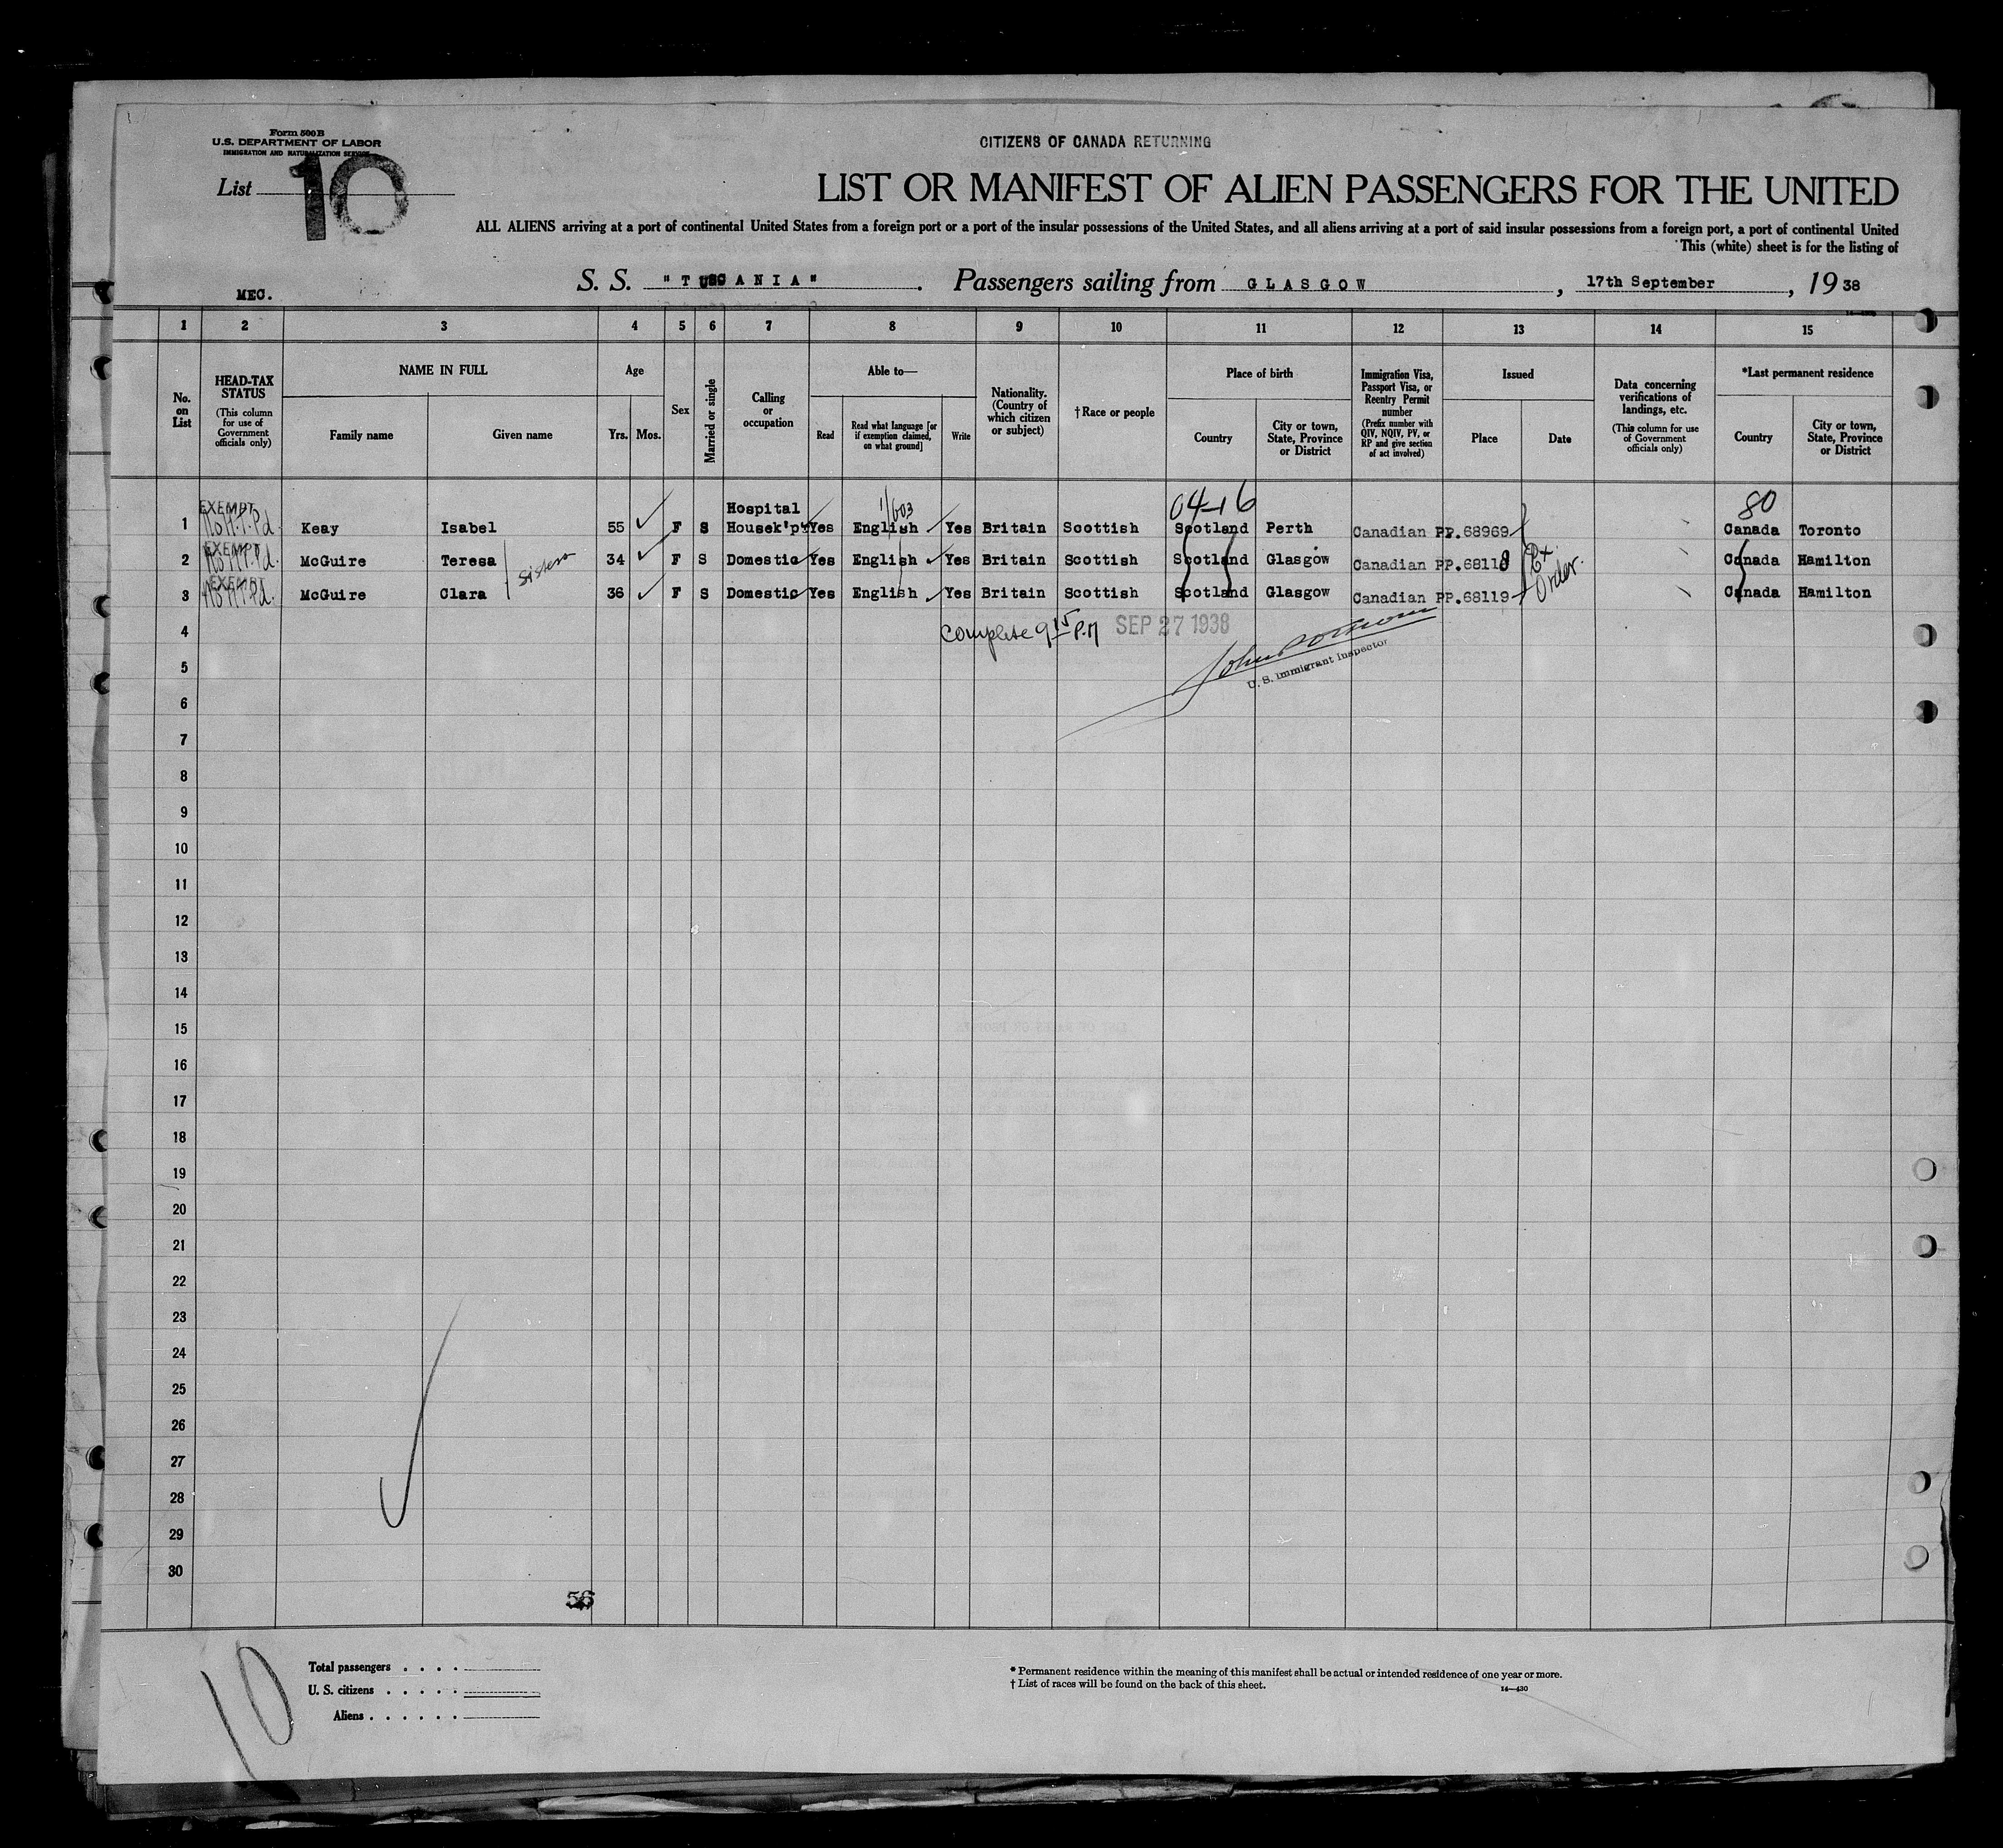 Form 500 B
U.S. DEPARTMENT OF LABOR
IMMIGRATION AND NATURALIZATION SERVICE
List 10
CITIZENS OF CANADA RETURNING
LIST OR MANIFEST OF ALIEN PASSENGERS FOR THE UNITED
ALL ALIENS arriving at a port of continental United States from a foreign port or a port of the insular possessions of the United States, and all aliens arriving at a port of said insular possessions from a foreign port, a port of continental United
This (white) sheet is for the listing of
MEC.
S. S. "TUSCANIA". Passengers sailing from GLASGOW, 17th September, 1938
1 2 3 4 5 6 7 8 9 10 11 12 13 14 15
No. on List
HEAD-TAX STATUS (This column for use of Government officials only)
NAME IN FULL
Family name Given name
Age
Yrs. Mos.
Sex
Married or single
Calling or occupation
Able to—
Read
Read what language [or if exemption claimed, on what ground]
Write
Nationality. (Country of which citizen or subject)
† Race or people
Place of birth
Country
City or town, State, Province or District
Immigration Visa, Passport Visa, or Reentry Permit number (Prefix number with QIV, NQIV, PV, or RP and give section of act involved)
Issued
Place Date
Data concerning verifications of landings, etc. (This column for use of Government officials only)
*Last permanent residence
Country
City or town, State, Province or District
EXEMPT Hospital 1/603 04-16 80
1 No H.T. Pd. Keay Isabel 55 F S Housek'p'r Yes English Yes Britain Scottish Scotland Perth Canadian PP.68969 Canada Toronto
EXEMPT
2 No H.T. Pd. McGuire Teresa Sisters 34 F S Domestic Yes English Yes Britain Scottish Scotland Glasgow Canadian PP.68118 Ex Order. Canada Hamilton
EXEMPT
3 No H.T. Pd. McGuire Clara 36 F S Domestic Yes English Yes Britain Scottish Scotland Glasgow Canadian PP.68119 Canada Hamilton
4 Complete 9 15 P.M SEP 27 1938
John
5 U. S. Immigrant Inspector
6
7
8
9
10
11
12
13
14
15
16
17
18
19
20
21
22
23
24
25
26
27
28
29
30
10
Total passengers
U. S. citizens
Aliens
* Permanent residence within the meaning of this manifest shall be actual or intended residence of one year or more.
† List of races will be found on the back of this sheet.
14—430